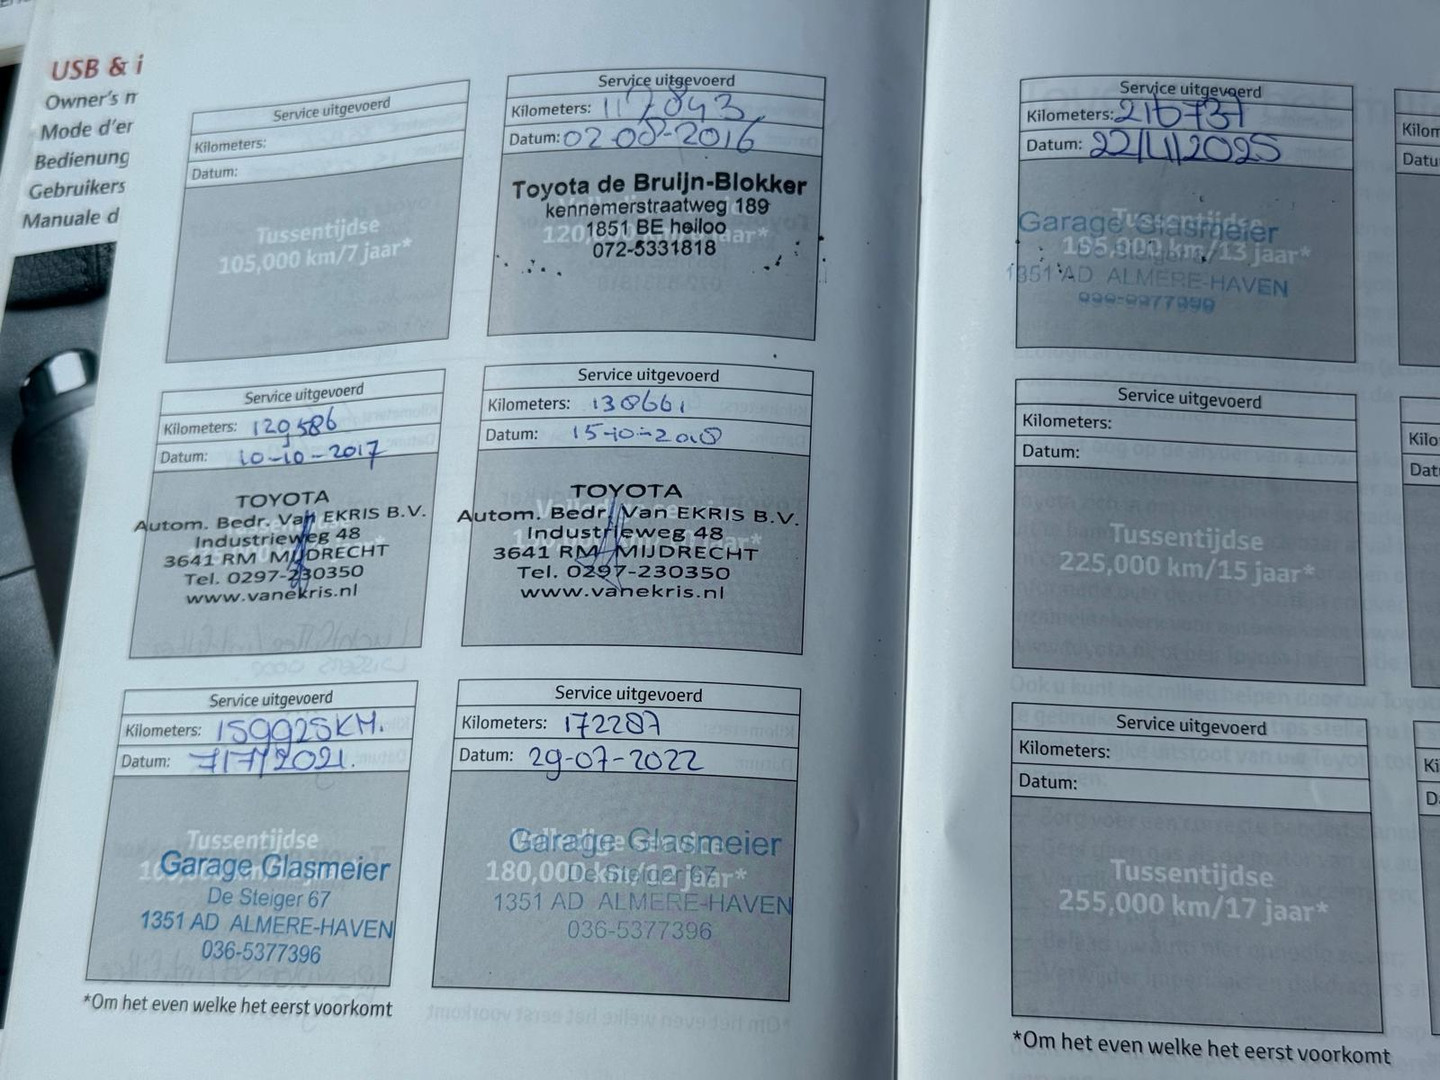 USB & i
Owner's m
Mode d'er
Bedienung
Gebruikers
Manuale d
Service uitgevoerd
Kilometers:
Datum:
Tussentijdse
105,000 km/7 jaar*
Service uitgevoerd
Kilometers: 117,843
Datum: 02-08-2016
Toyota de Bruijn-Blokker
kennemerstraatweg 189
1851 BE heiloo
072-5331818
Service uitgevoerd
Kilometers: 129,586
Datum: 10-10-2017
TOYOTA
Autom. Bedr. Van EKRIS B.V.
Industrieweg 48
3641 RM MIJDRECHT
Tel. 0297-230350
www.vanekris.nl
Service uitgevoerd
Kilometers: 138661
Datum: 15-10-2018
TOYOTA
Autom. Bedr. Van EKRIS B.V.
Industrieweg 48
3641 RM MIJDRECHT
Tel. 0297-230350
www.vanekris.nl
Service uitgevoerd
Kilometers: 159925KM.
Datum: 7/7/2021.
Tussentijdse
Garage Glasmeier
De Steiger 67
1351 AD ALMERE-HAVEN
036-5377396
Service uitgevoerd
Kilometers: 172287
Datum: 29-07-2022
Garage Glasmeier
180,000 km/12 jaar*
De Steiger 67
1351 AD ALMERE-HAVEN
036-5377396
*Om het even welke het eerst voorkomt
Service uitgevoerd
Kilometers: 216737
Datum: 22/4/2025
Tussentijdse
Garage Glasmeier
195,000 km/13 jaar*
1351 AD ALMERE-HAVEN
Service uitgevoerd
Kilometers:
Datum:
Tussentijdse
225,000 km/15 jaar*
Service uitgevoerd
Kilometers:
Datum:
Tussentijdse
255,000 km/17 jaar*
*Om het even welke het eerst voorkomt
Kilom
Datu
Kilo
Dat
Ki
D